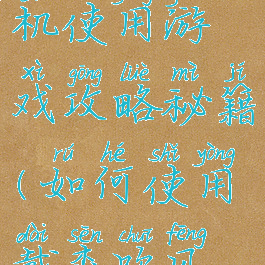 机使用游
xì gōng lüè mì jí
戏攻略秘籍
rú hé shǐ yòng
(如何使用
dài sēn chuī fēng
戴森吹风